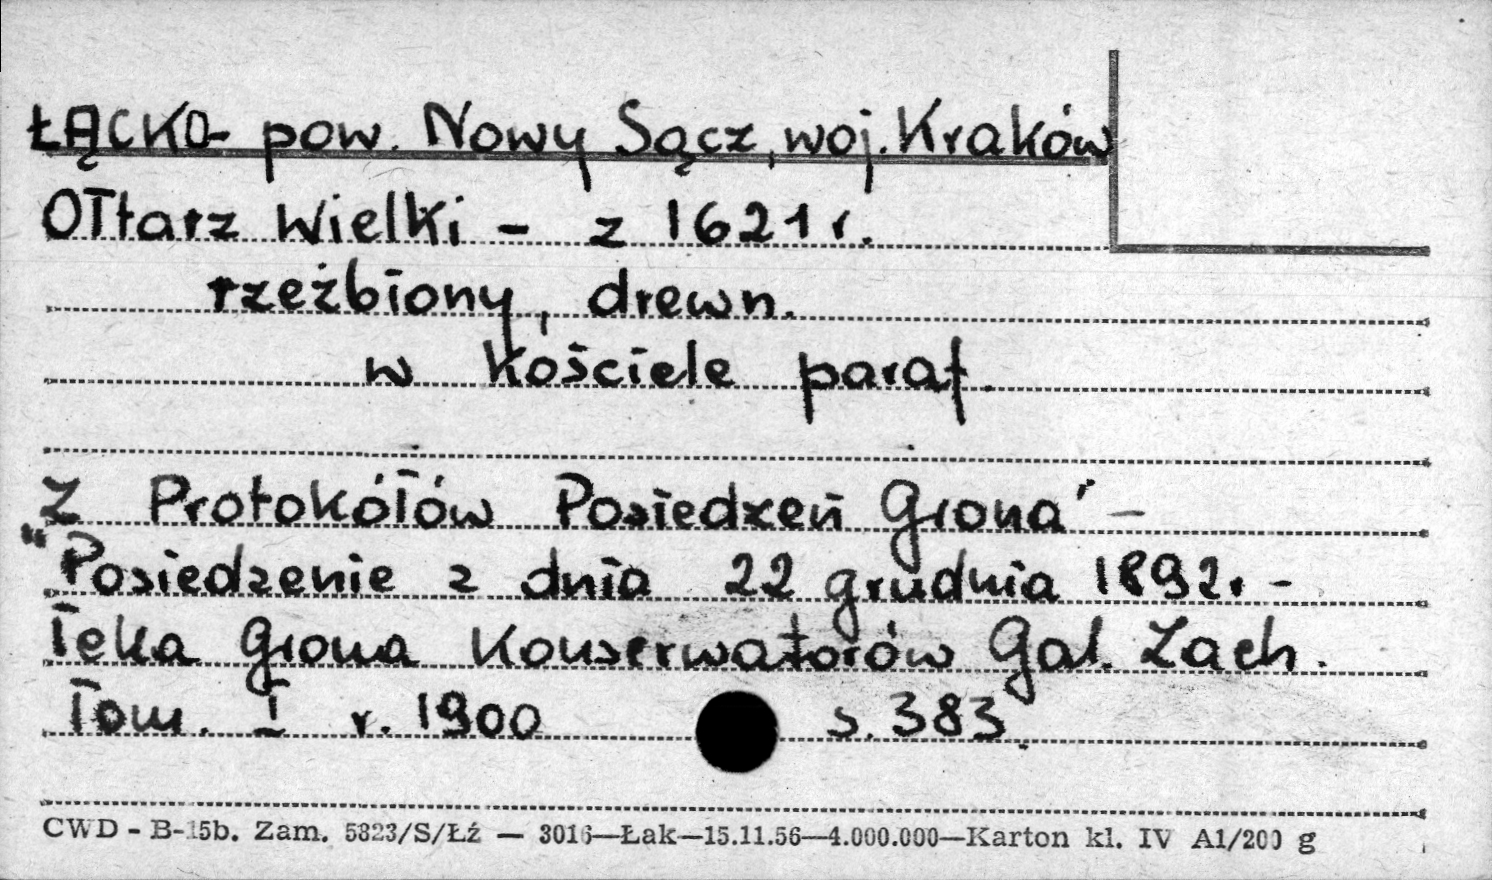 ŁĄCKO- pow. Nowy Sącz, woj. Kraków
OŁtarz Wielki - z 1621 r.
rzeźbiony, drewn.
w Kościele paraf.
"Z Protokółów Posiedzeń Grona" -
Posiedzenie z dnia 22 grudnia 1892r -
Teka Grona Konserwatorów Gal. Zach.
Tom. I r. 1900 s. 383.
CWD - B-15b. Zam. 5323/S/Łź — 3016—Łak—15.11.56—4.000.000—Karton kl. IV A1/200 g